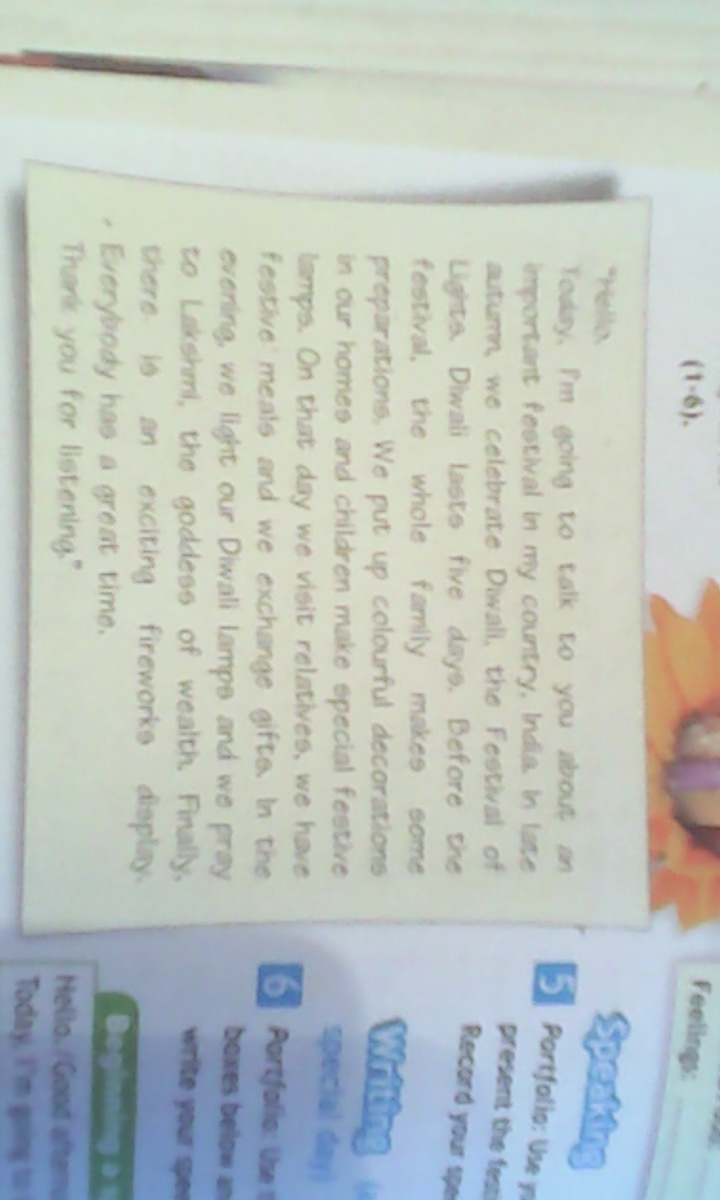 (1-6).
"Hello,
Today, I'm going to talk to you about an
important festival in my country, India. In late
autumn, we celebrate Diwali, the Festival of
Lights. Diwali lasts five days. Before the
festival, the whole family makes some
preparations. We put up colourful decorations
in our homes and children make special festive
lamps. On that day we visit relatives, we have
festive meals and we exchange gifts. In the
evening, we light our Diwali lamps and we pray
to Lakshmi, the goddess of wealth. Finally,
there is an exciting fireworks display.
Everybody has a great time.
Thank you for listening."
Feelings:
Speaking
5 Portfolio: Use
present the
Record your
Writing
special day)
6 Portfolio: Use
boxes below
write your
Beginning
Hello./Good
Today, I'm going